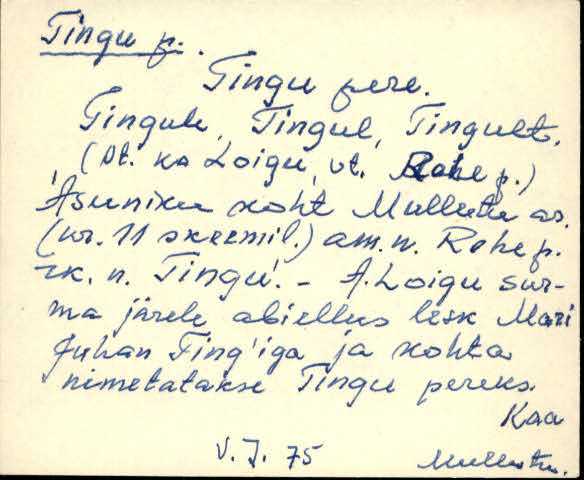 Tingu p.
Tingu pere.
Tingule, Tingul, Tingult.
(Vt. ka Loigu, vt. Rohe p.)
Asuniku koht Mullutu as.
(nr. 11 skeemil.) am. n. Rohe p.
rk. n. Tingu. - A. Loigu sur-
ma järele abiellus lesk Mari
Juhan Ting'iga ja kohta
nimetatakse Tingu pereks.
Kaa
V. J. 75 Mullutu.